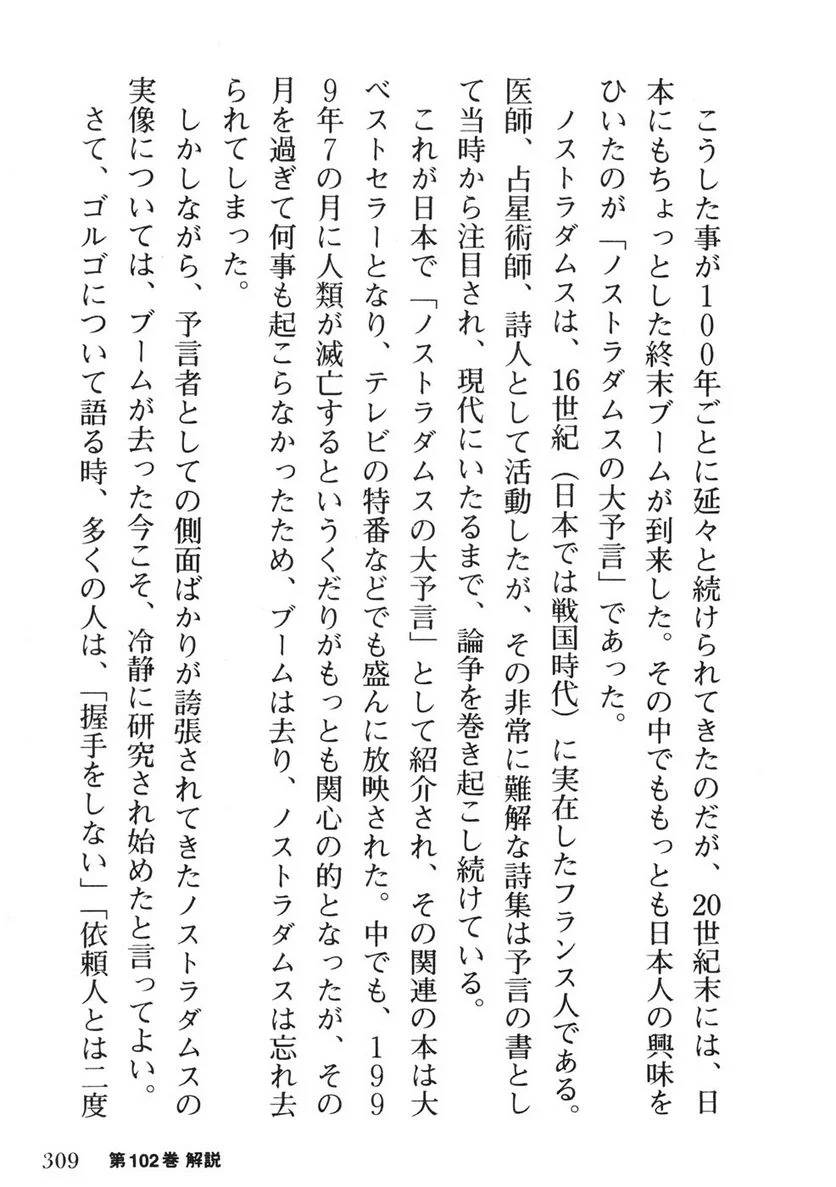 こうした事が100年ごとに延々と続けられてきたのだが、20世紀末には、日
本にもちょっとした終末ブームが到来した。その中でももっとも日本人の興味を
ひいたのが「ノストラダムスの大予言」であった。
ノストラダムスは、16世紀（日本では戦国時代）に実在したフランス人である。
医師、占星術師、詩人として活動したが、その非常に難解な詩集は予言の書とし
て当時から注目され、現代にいたるまで、論争を巻き起こし続けている。
これが日本で「ノストラダムスの大予言」として紹介され、その関連の本は大
ベストセラーとなり、テレビの特番などでも盛んに放映された。中でも、199
9年7の月に人類が滅亡するというくだりがもっとも関心の的となったが、その
月を過ぎて何事も起こらなかったため、ブームは去り、ノストラダムスは忘れ去
られてしまった。
しかしながら、予言者としての側面ばかりが誇張されてきたノストラダムスの
実像については、ブームが去った今こそ、冷静に研究され始めたと言ってよい。
さて、ゴルゴについて語る時、多くの人は、「握手をしない」「依頼人とは二度
309 第102巻 解説